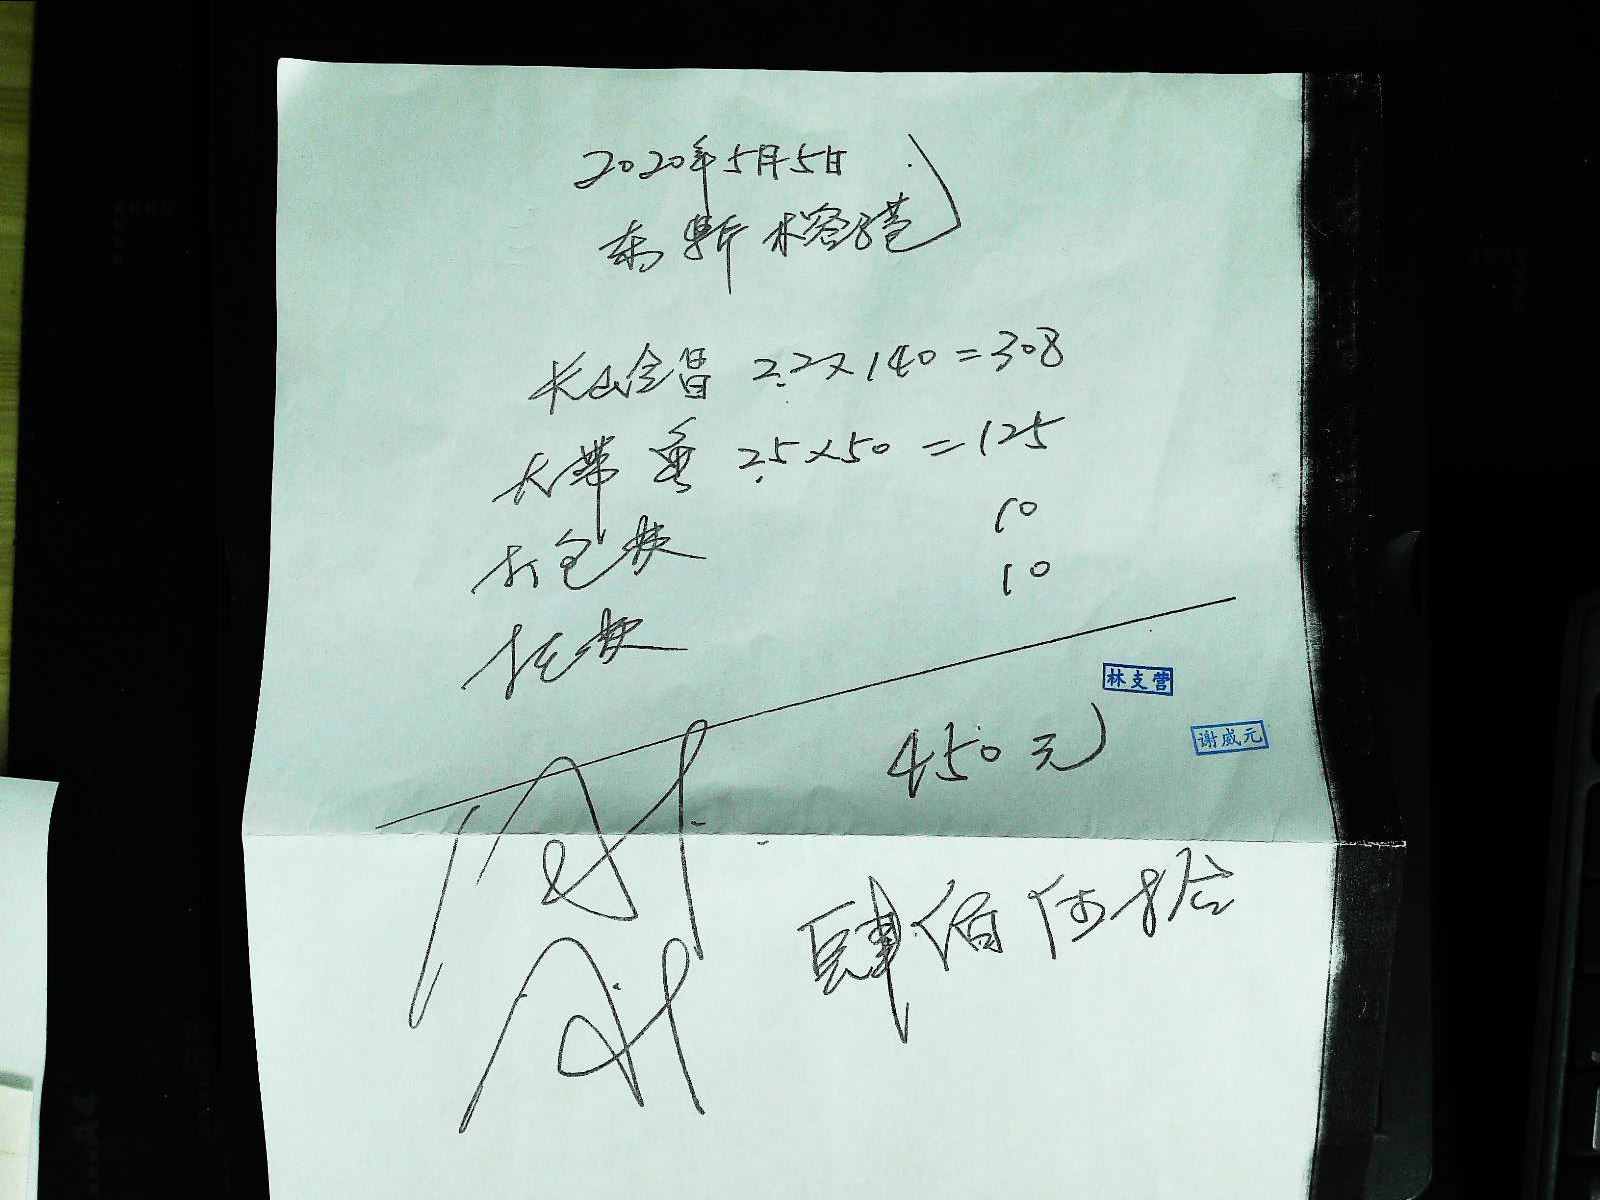 2020年5月5日
东 斯 榕港
长山合昌 2.2×140=308
大带鱼 2.5×50=125
打包款 10
托款 10
林支营
450元
谢威元
肆佰伍拾